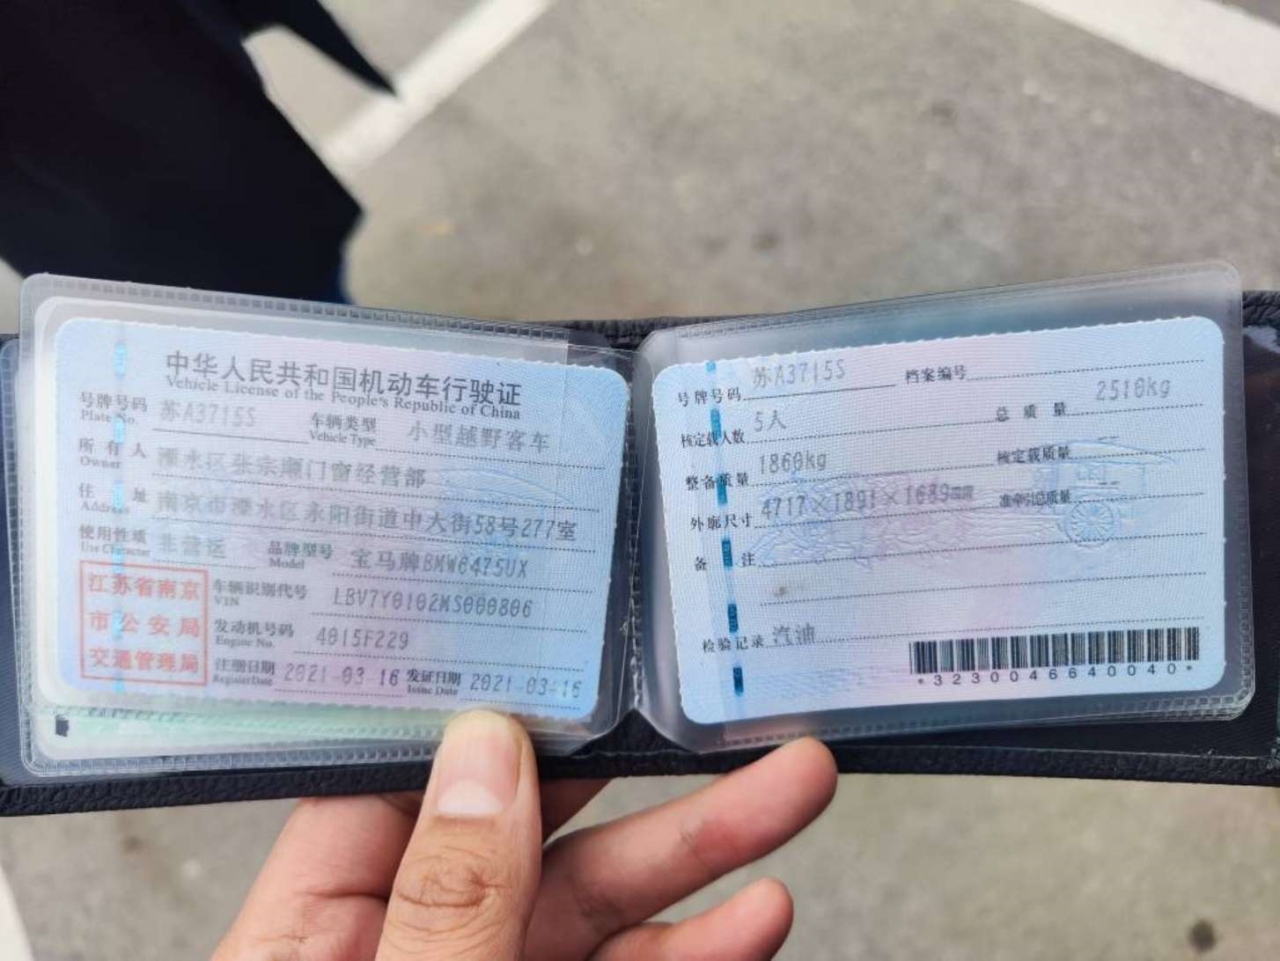 中华人民共和国机动车行驶证
Vehicle License of the People's Republic of China
号牌号码 苏A3715S 车辆类型 小型越野客车
Plate No. Vehicle Type
所有人 溧水区张宗顺门窗经营部
Owner
住址 南京市溧水区永阳街道中大街58号277室
Address
使用性质 非营运 品牌型号 宝马牌BMW6475UX
Use Character Model
江苏省南京
市公安局
交通管理局
车辆识别代号 LBV7Y0102MS000806
VIN
发动机号码 4015F229
Engine No.
注册日期 2021-03-16 发证日期 2021-03-16
Register Date Issue Date
号牌号码 苏A3715S 档案编号
核定载人数 5人 总质量 2510kg
整备质量 1860kg 核定载质量
外廓尺寸 4717×1891×1689mm 准牵引总质量
备注
检验记录 汽油
*3230046640040*